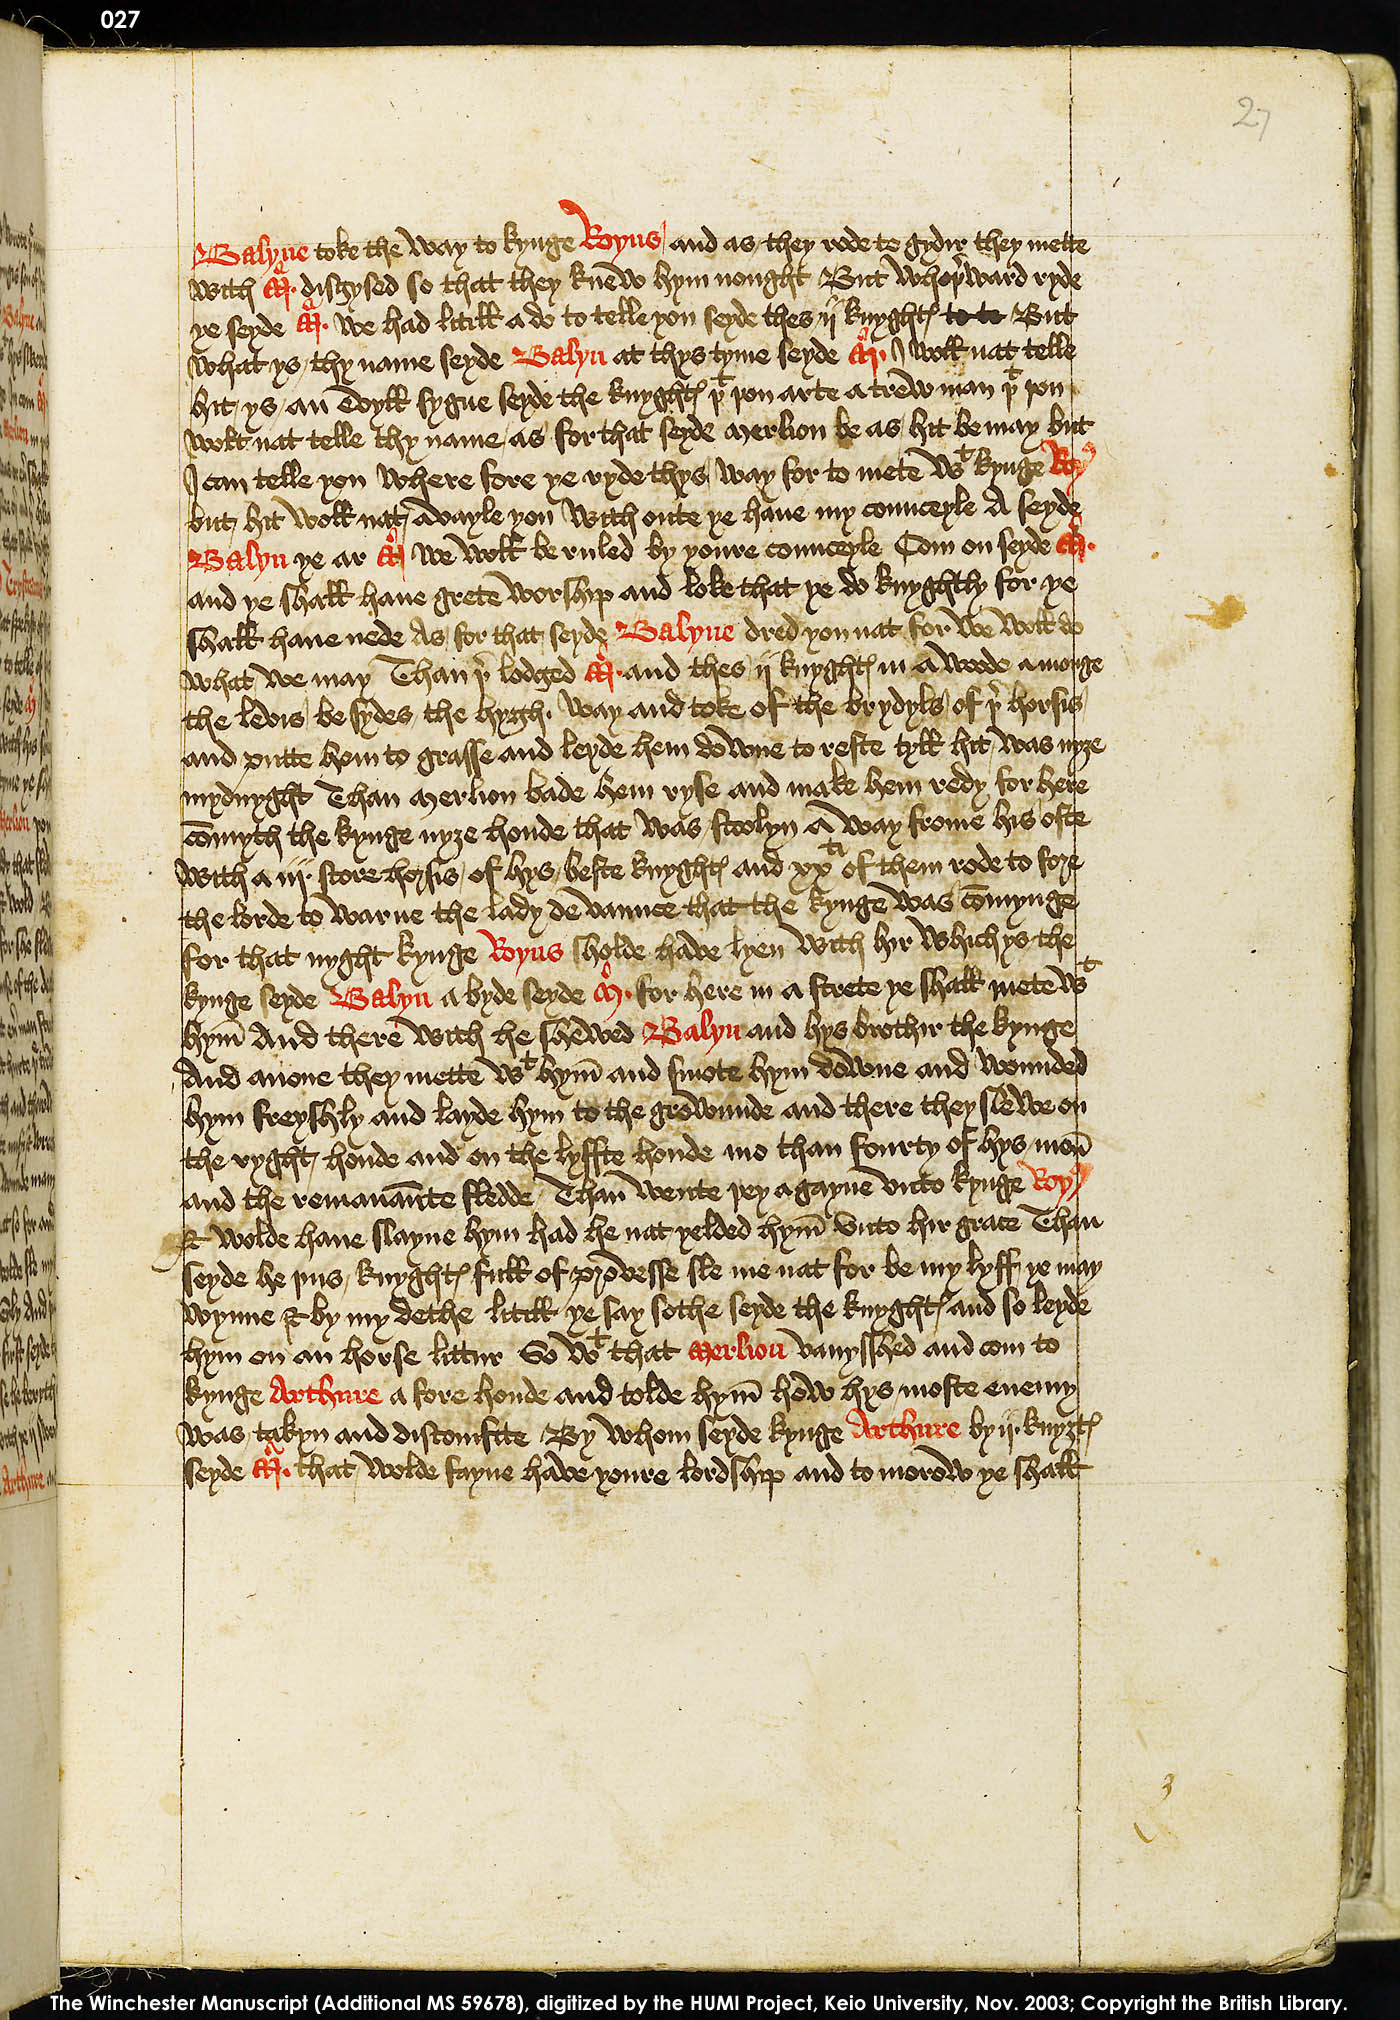 027
27
Balyne toke the way to kynge Royns and as they rode to gydir they mette
with M. disgysed so that they knew hym nought But whoþward ryde
ye seyde M. we had litill a do to telle you seyde thes ij knyghtꝭ to to But
what ys thy name seyde Balyn at thys tyme seyde M. I woll nat telle
hit ys an Evyll sygne seyde the knyghtꝭ þt þou arte a trew man þt þou
wolt nat telle thy name as for that seyde Merlion be as hit be may but
I can telle you where fore ye ryde thys way for to mete wt kynge Roy
but hit woll nat avayle you with oute ye haue my counceyle A seyde
Balyn ye ar M we woll be ruled by youre counceyle Com on seyde M.
and ye shall haue grete worship and loke that ye do knyghtly for ye
shall haue nede As for that seyde Balyne dred you nat for we woll do
what we may Than þer lodged M. and thes ij knyghtꝭ in a woode amonge
the levis be sydes the hygh way and toke of the brydyls of þer horsis
and putte hem to grasse and leyde hem downe to reste tyll hit was nyȝe
mydnyght Than Merlion bade hem ryse and make hem redy for here
com̄yth the kynge nyȝe honde that was stoolyn a way frome his oste
with a iij. score horsis of hys beste knyghtꝭ and xxti of them rode to fore
the lorde to warne the lady de vaunce that the kynge was com̄ynge
for that nyght kynge Royns sholde haue lyen with hir which ys the
kynge seyde Balyn a byde seyde M. for here in a strete ye shall mete wt
hym̄ And there with he shewed Balyn and hys brothir the kynge
And anone they mette wt hym̄ and smote hym downe and wounded
hym freyshly and layde hym to the growunde and there they slewe on
the ryght honde and on the lyffte honde mo than fourty of hys men̄
and the remanaūte fledde Than wente þey agayne vnto kynge Roy
& wolde haue slayne hym had he nat yelded hym̄ vnto hir grace Than
seyde he þus knyghtꝭ full of prouesse sle me nat for be my lyff ye may
wynne & by my dethe litill ye say sothe seyde the knyghtꝭ and so leyde
hym on an horse littur So wt that Merlion vanysshed and com to
kynge Arthure a fore honde and tolde hym̄ how hys moste enemy
was takyn and discomfite By whom seyde kynge Arthure by ij. knyȝtꝭ
seyde M. that wolde fayne haue youre lordship and to morow ye shall
The Winchester Manuscript (Additional MS 59678), digitized by the HUMI Project, Keio University, Nov. 2003; Copyright the British Library.